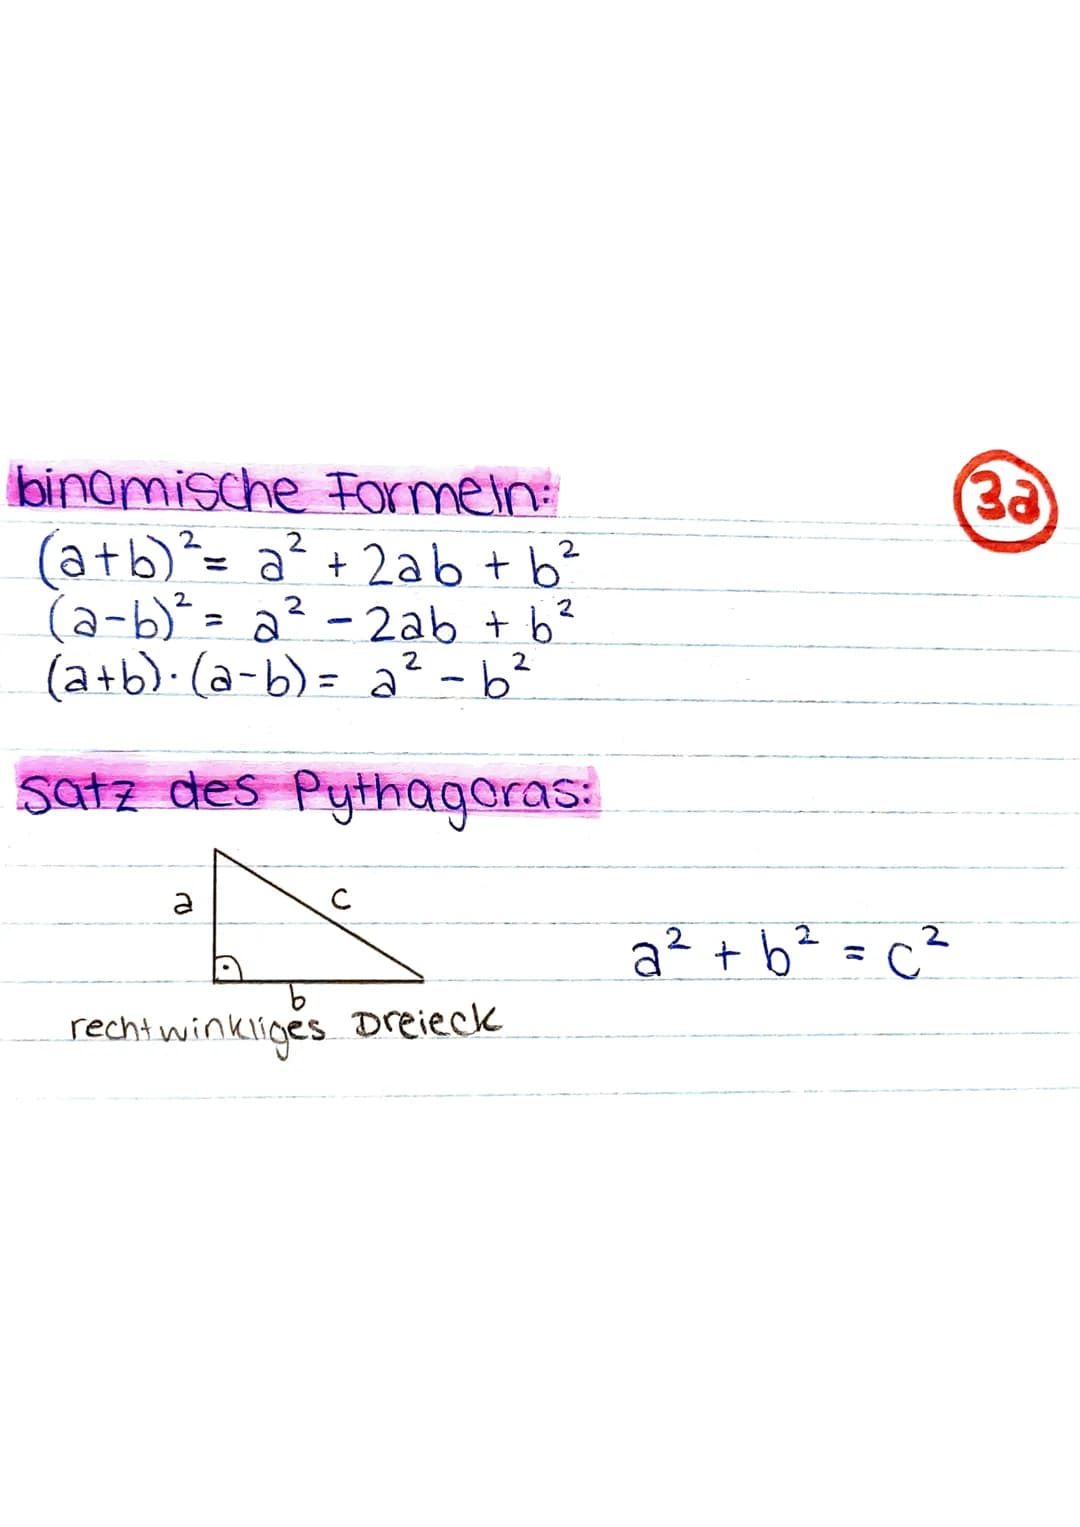 binomische Formeln:
3a
(a+b)²= a² + 2ab + b²
(a-b)² = a² - 2ab + b²
(a+b)·(a-b) = a² - b²
Satz des Pythagoras:
a
c
a² + b² = c²
b
rechtwinkliges Dreieck